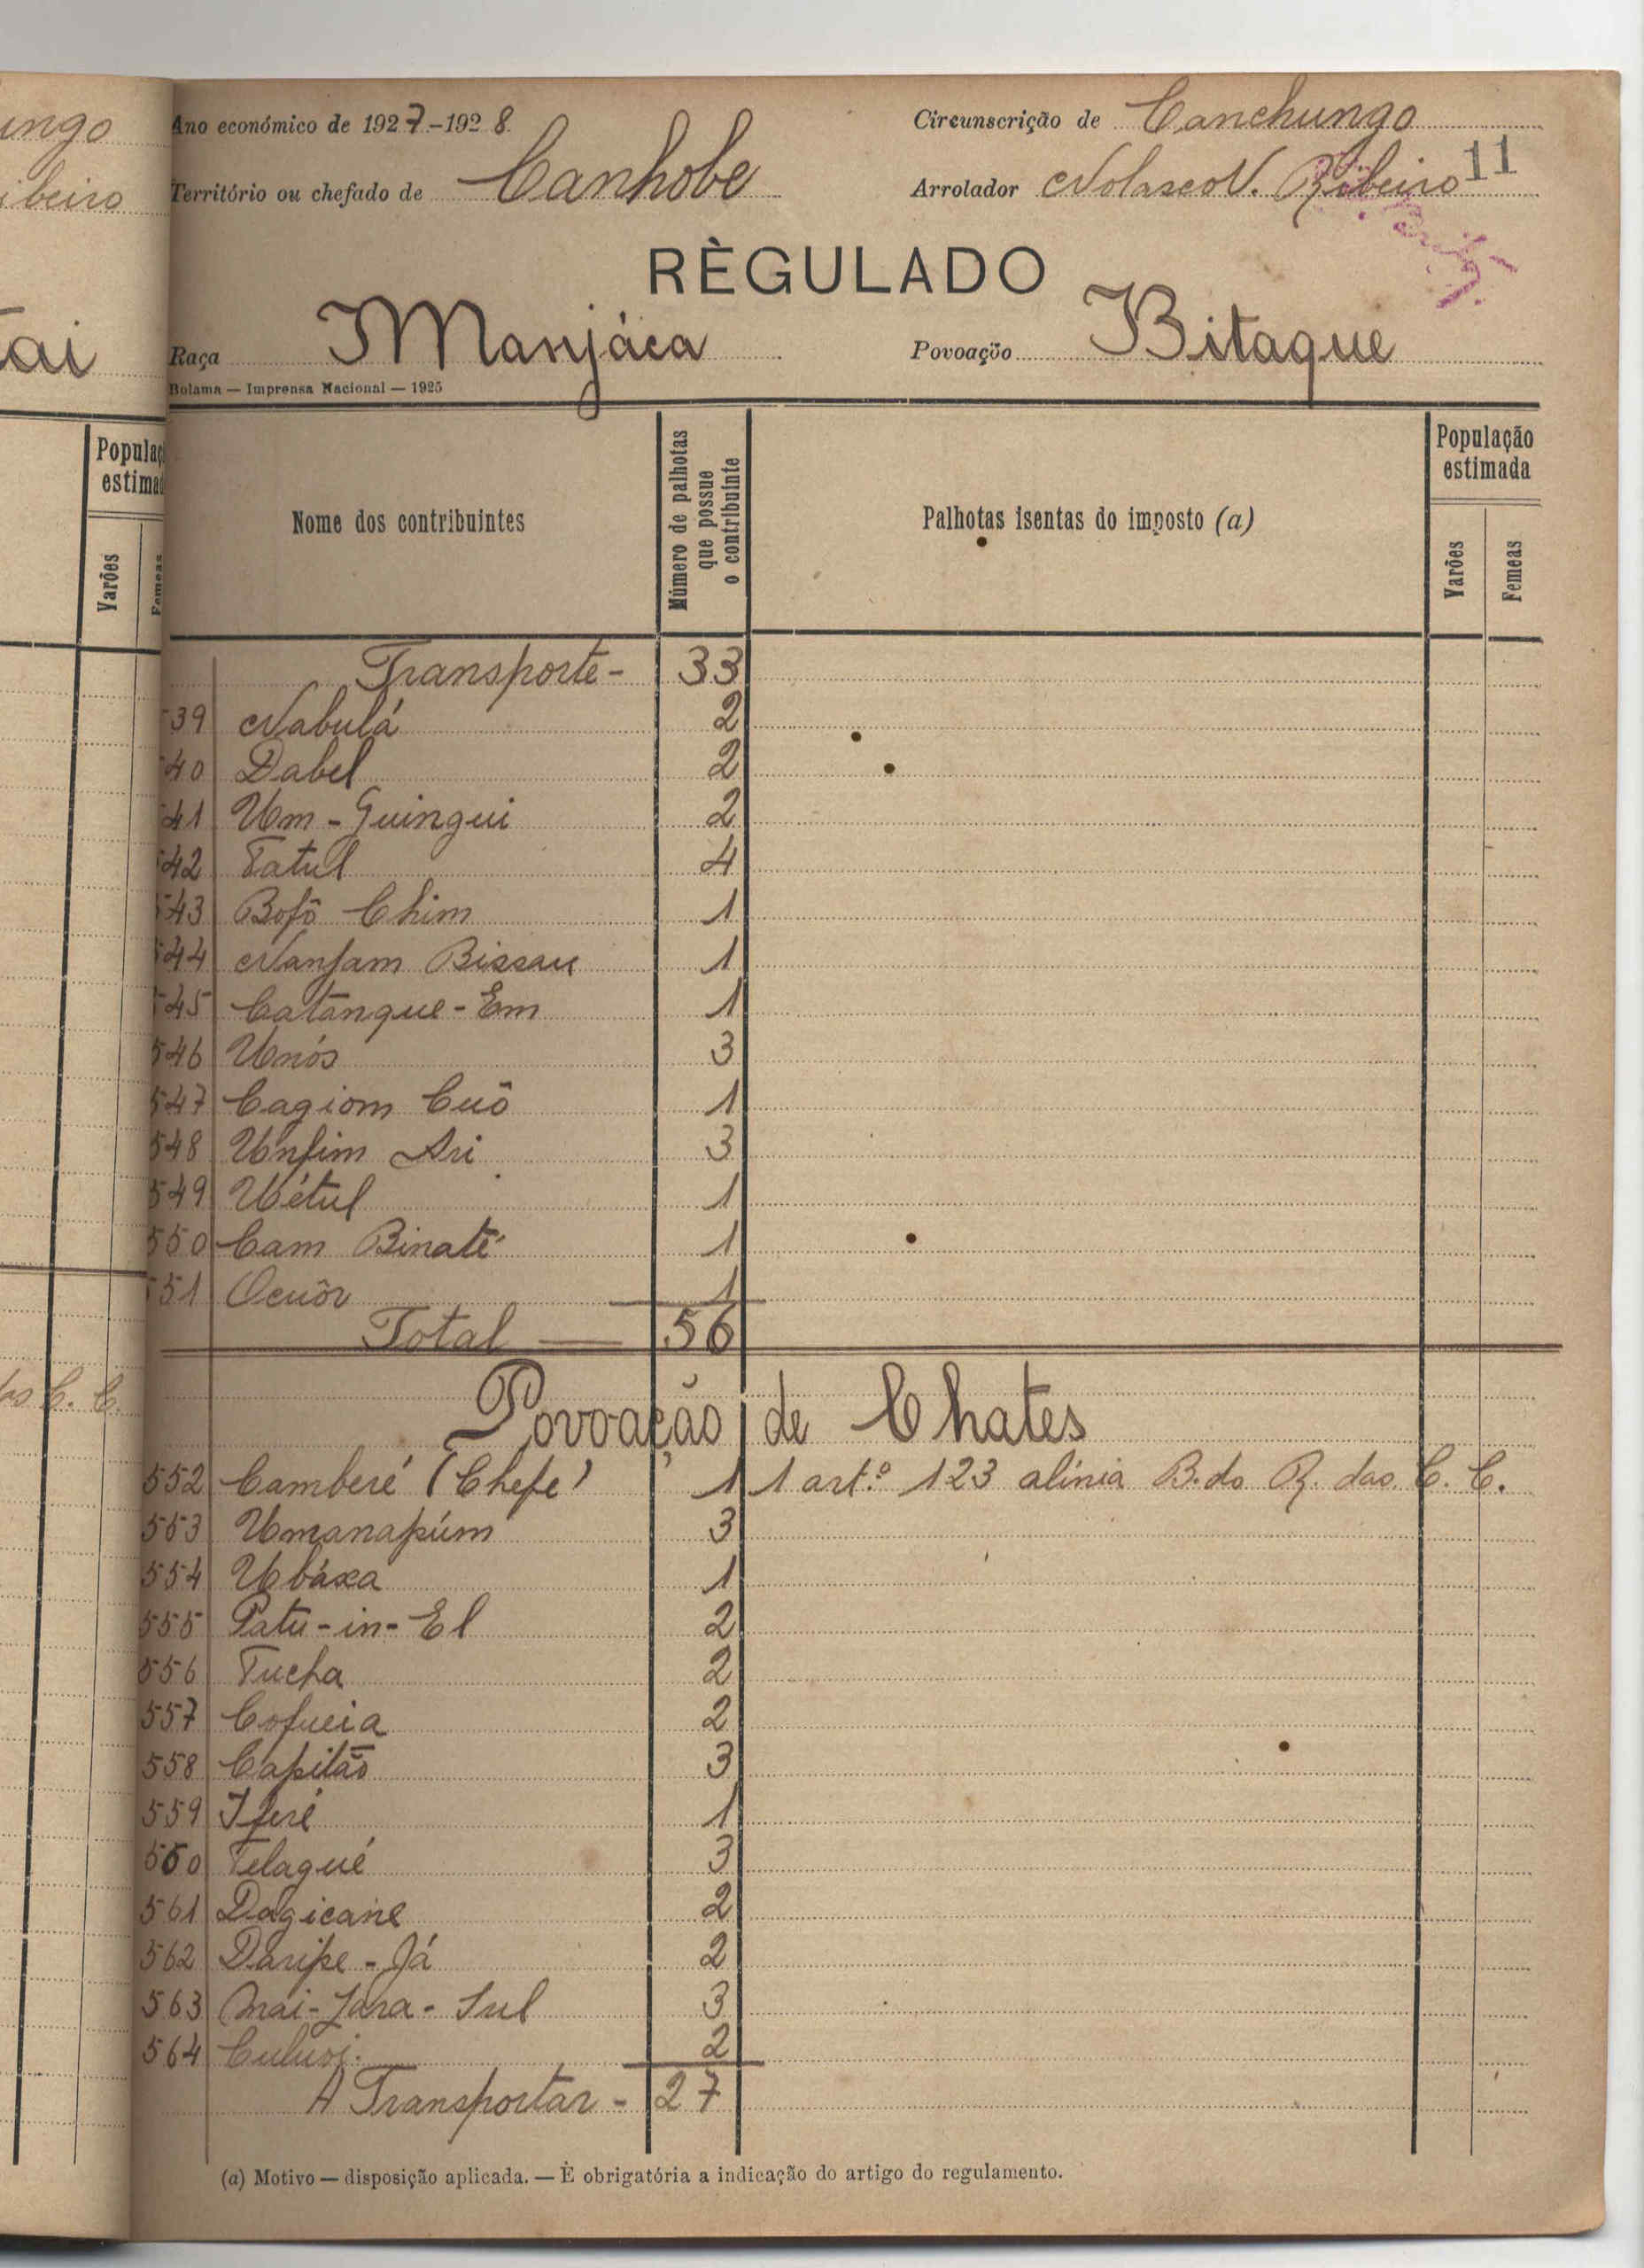 ungo
ibeiro
ai
Ano económico de 1927-1928
Circunscrição de Canchungo
11
Território ou chefado de Canhobe
Arrolador Nolasco V. Ribeiro
RÈGULADO
Raça Manjáca
Povoação Bitaque
Bolama — Imprensa Nacional — 1925
Nome dos contribuintes
Número de palhotas que possue o contribuinte
Palhotas isentas do imposto (a)
População estimada
Varões
Femeas
Transporte - 33
539 Nabulá 2
540 Dabel 2
541 Um - Guingui 2
542 Tatul 4
543 Bofô Chim 1
544 Nanfam Bissau 1
545 Catangue - Em 1
546 Unós 3
547 Cagiom Cuô 1
548 Unfim Ari 3
549 Uétul 1
550 Cam Binaté 1
551 Ocuôr 1
Total — 56
Povoação de Chates
552 Camberé (Chefe) 1 1 art.º 123 alínia B. do R. das C. C.
553 Umanapúm 3
554 Ubáxa 1
555 Patu-in-El 2
556 Tucha 2
557 Cofueia 2
558 Capitão 3
559 Iferé 1
560 Telagué 3
561 Dagicane 2
562 Daripe - Já 2
563 Mai-Jara-Sul 3
564 2
A Transportar - 27
(a) Motivo — disposição aplicada. — È obrigatória a indicação do artigo do regulamento.